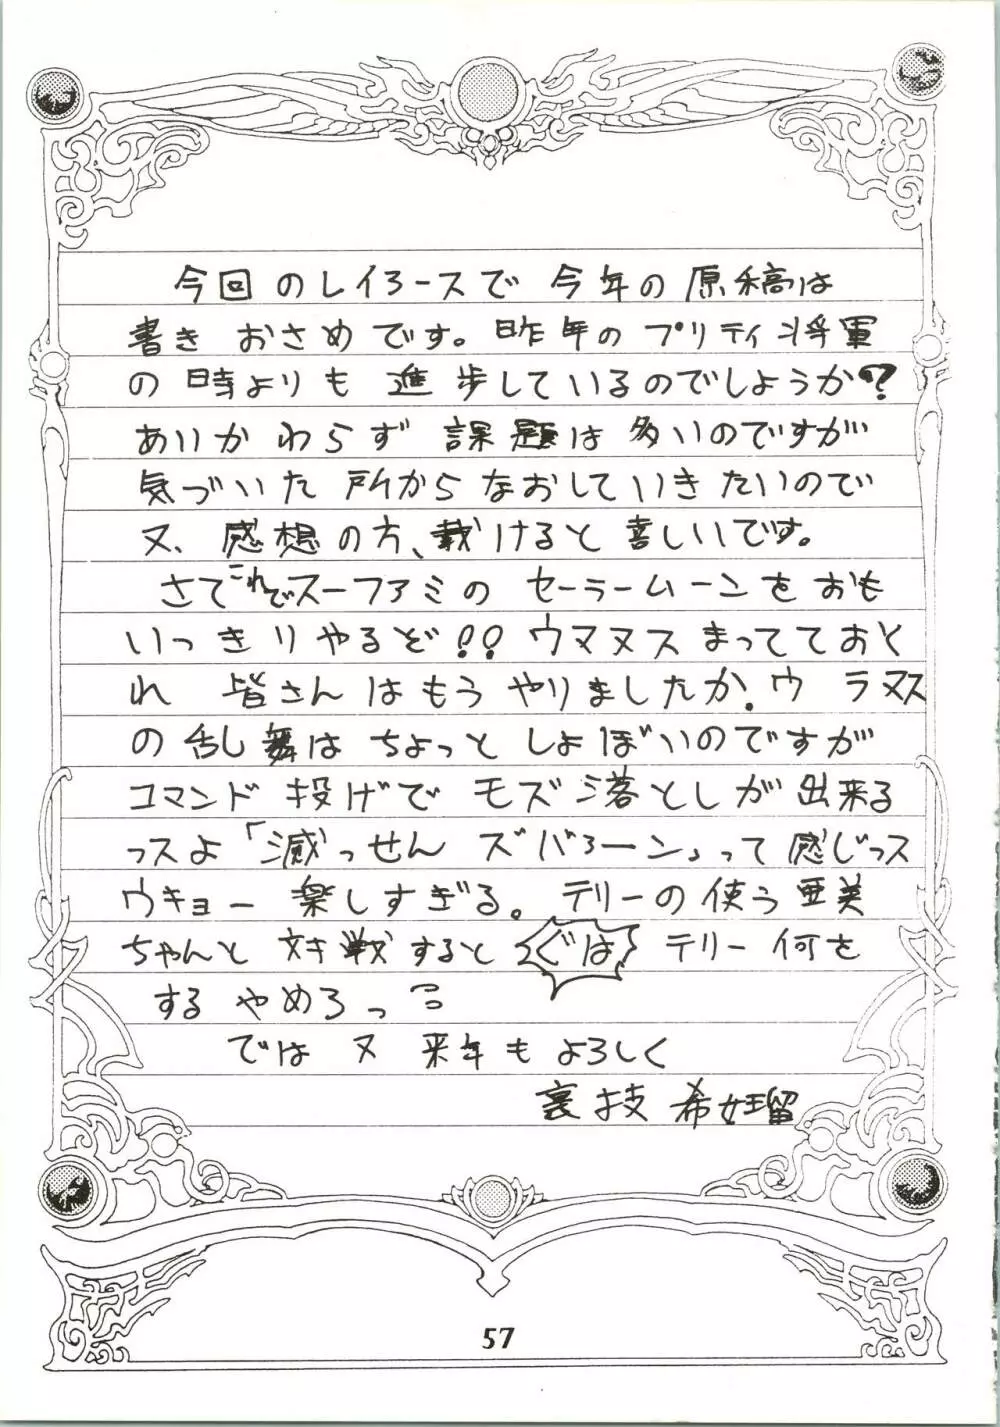 今回のレイアースで今年の原稿は
書きおさめです。昨年のプリティ将軍
の時よりも進歩しているのでしょうか?
あいかわらず課題は多いのですが
気づいた所からなおしていきたいので
又、感想の方、載けると喜しいです。
さてこれでスーファミのセーラームーンをおも
いっきりやるぞ!!ウマヌスまってておく
れ 皆さんはもうやりましたか。ウラヌス
の乱舞はちょっとしょぼいのですが
コマンド投げでモズ落としが出来る
っスよ「滅っせんズバろーン」って感じっス
ウキョー楽しすぎる。テリーの使う亜美
ちゃんと対戦すると ぐは テリー何を
するやめろっ
では又来年もよろしく
裏技 希女王留
57